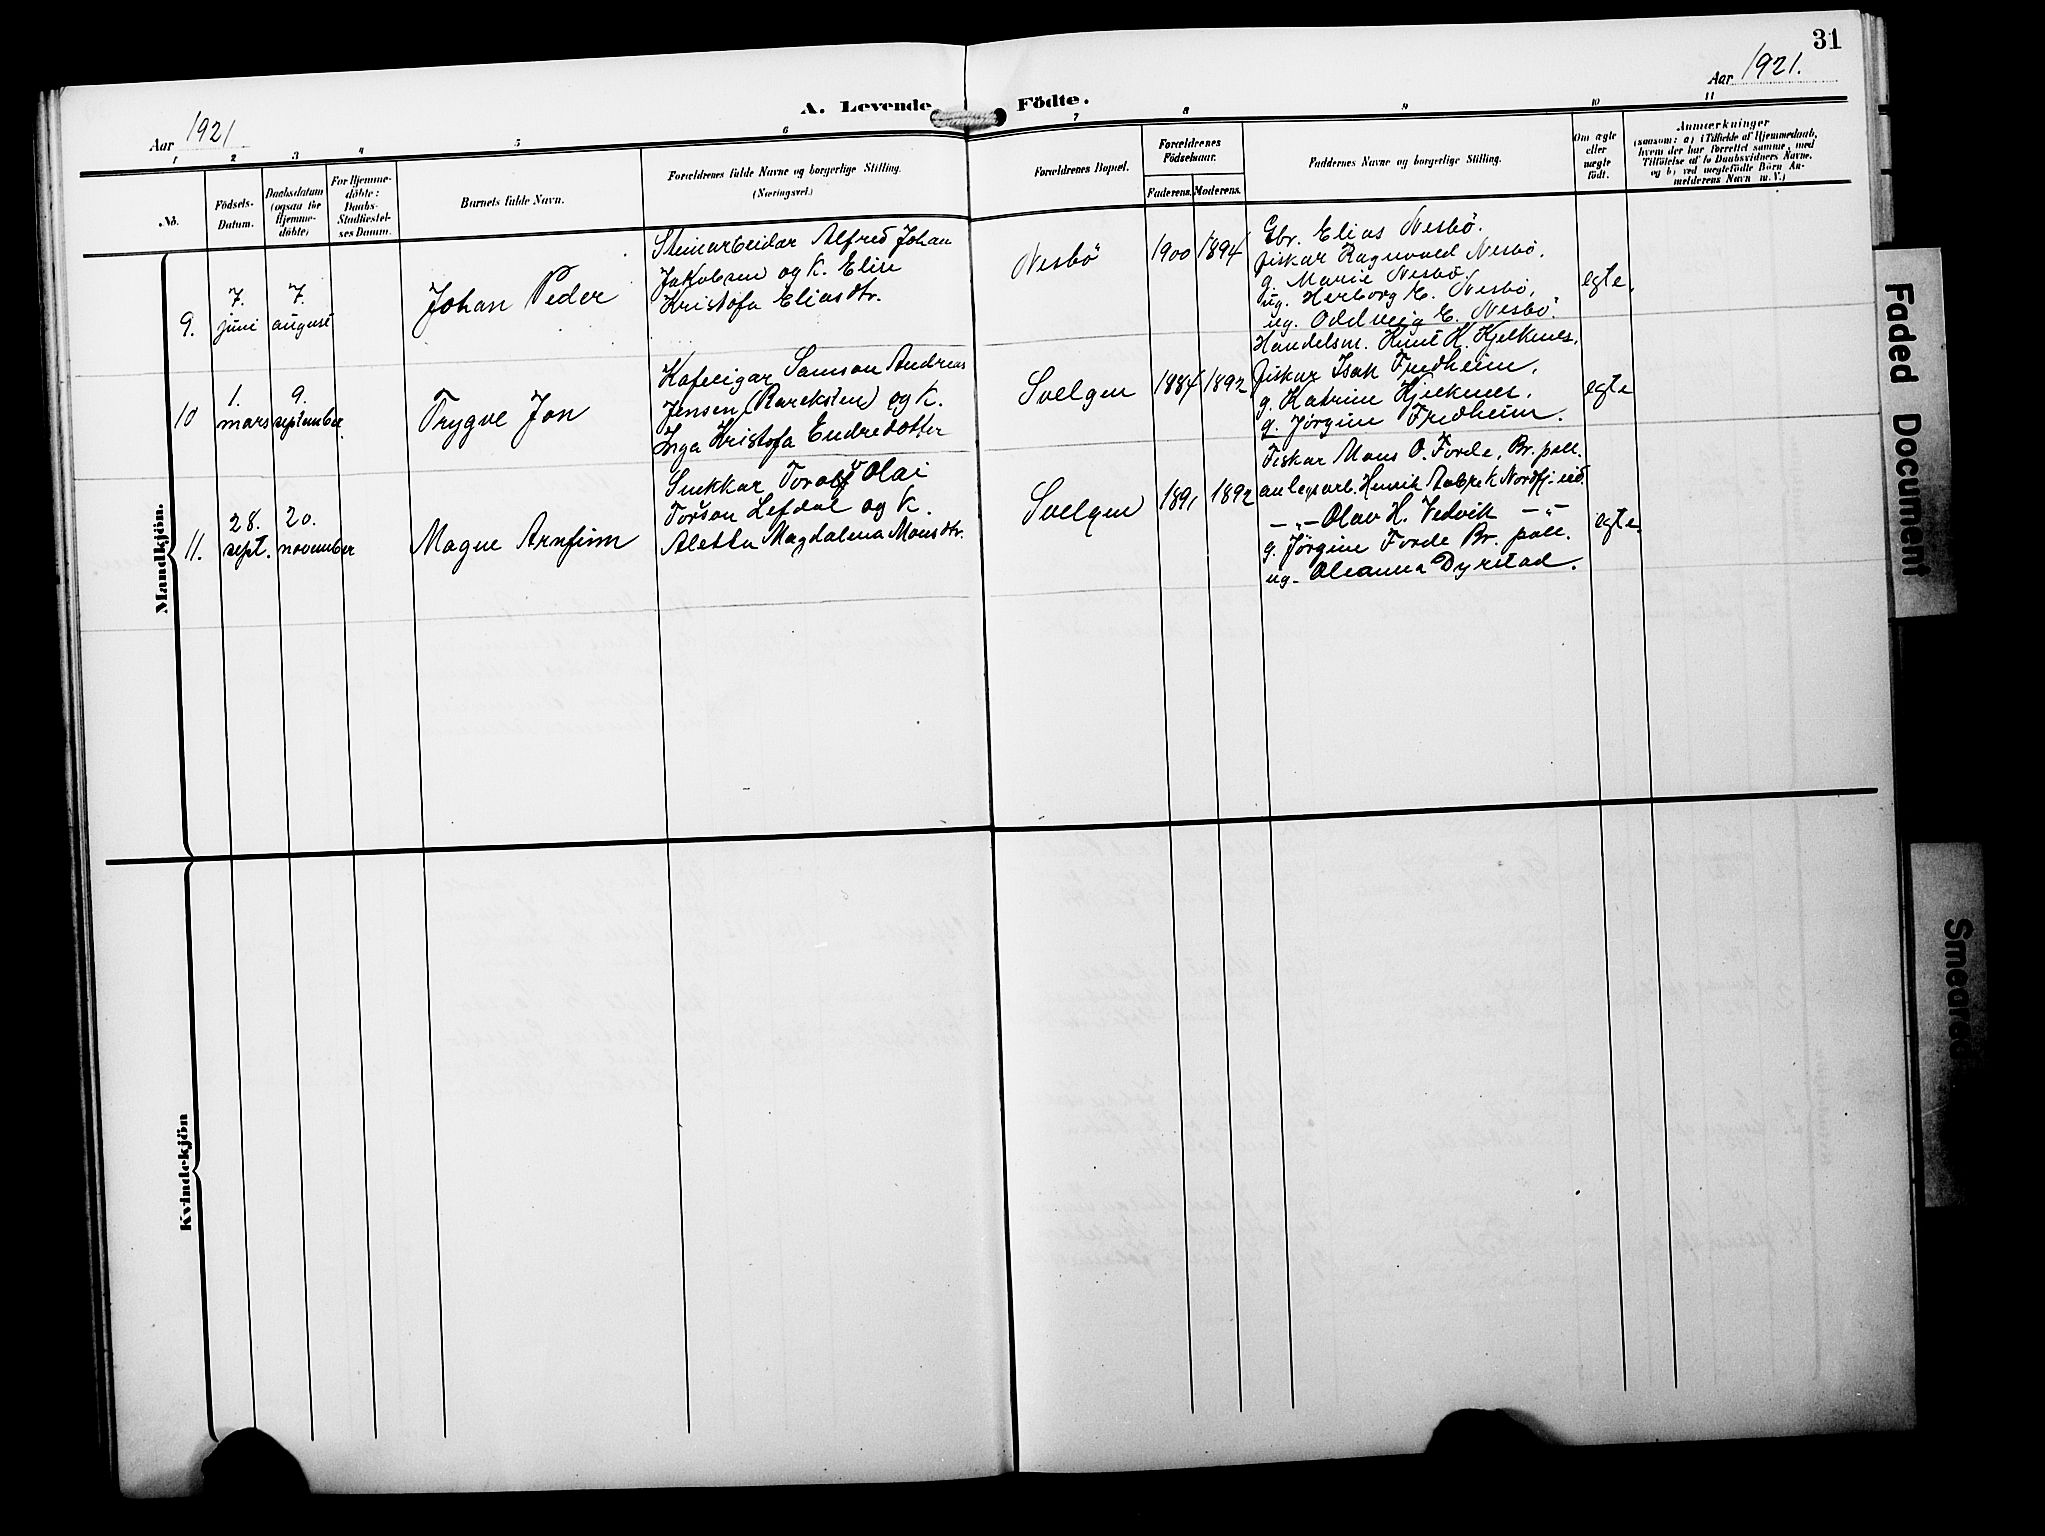 31
Aar 1921.
A. Levende Födte.
Aar 1921
1 2 3 4 5 6 7 8 9 10 11
No.
Födsels-
Datum.
Daabsdatum
(ogsaa for
Hjemme-
döbte)
For Hjemme-
döbte:
Daabs-
Stadfæstel-
ses Datum.
Barnets fulde Navn.
Forældrenes fulde Navne og borgerlige Stilling.
(Næringsvei.)
Forældrenes Bopæl.
Forældrenes
Födselsaar.
Faderens. Moderens.
Faddernes Navne og borgerlige Stilling.
Om ægte
eller
uægte
født.
Anmærkninger
(saasom: a) i Tilfælde af Hjemmedaab,
hvem der har forrettet samme, med
Tilföielse af to Daabsvidners Navne,
og b) ved uægtefödte Börn An-
melderens Navn m. V.)
Mandkjön.
9.
7.
juni
7.
august
Johan Peder
Steinarbeidar Alfred Johan
Jakobsen og K. Elise
Kristofa Eliasdtr.
Nesbö
1900
1894
Gbr. Elias Nesbö.
fiskar Ragnvald Nesbö.
g. Marie Nesbö.
ug. Herborg E. Nesbö.
ug. Oddveig E. Nesbö.
egte.
10
1.
mars
9.
september.
Trygve Jon
Kafeeigar Samson Andreas
Jensen (Rareksten) og K.
Inga Kristofa Endredotter
Svelgen
1884
1892
Handelsm. Knut K. Hjelknes.
fiskar Isak Fredheim.
g. Katrine Hjelknes.
g. Jørgine Fredheim.
egte
11.
28.
sept.
20.
november
Magne Arnfinn
Snekkar Toralv Olai
Torson Lefdal og K.
Aletta Magdalena Monsdtr.
Svelgen
1891
1892
Fiskar Mons O. Førde, Br. poll.
anlegsarb. Henrik Aabrek Nordfj-eid.
-„- Olav H. Vedvik -„-
g. Jørgine Førde Br. poll.
ug. Oleanna Dyrstad.
egte.
Kvindekjön
Faded Document
Smeared